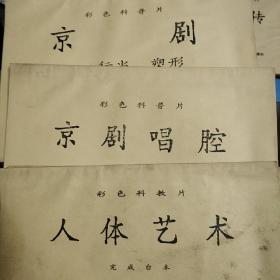 彩色科普片
京剧
塑形
彩色科普片
京剧唱腔
彩色科教片
人体艺术
完成台本